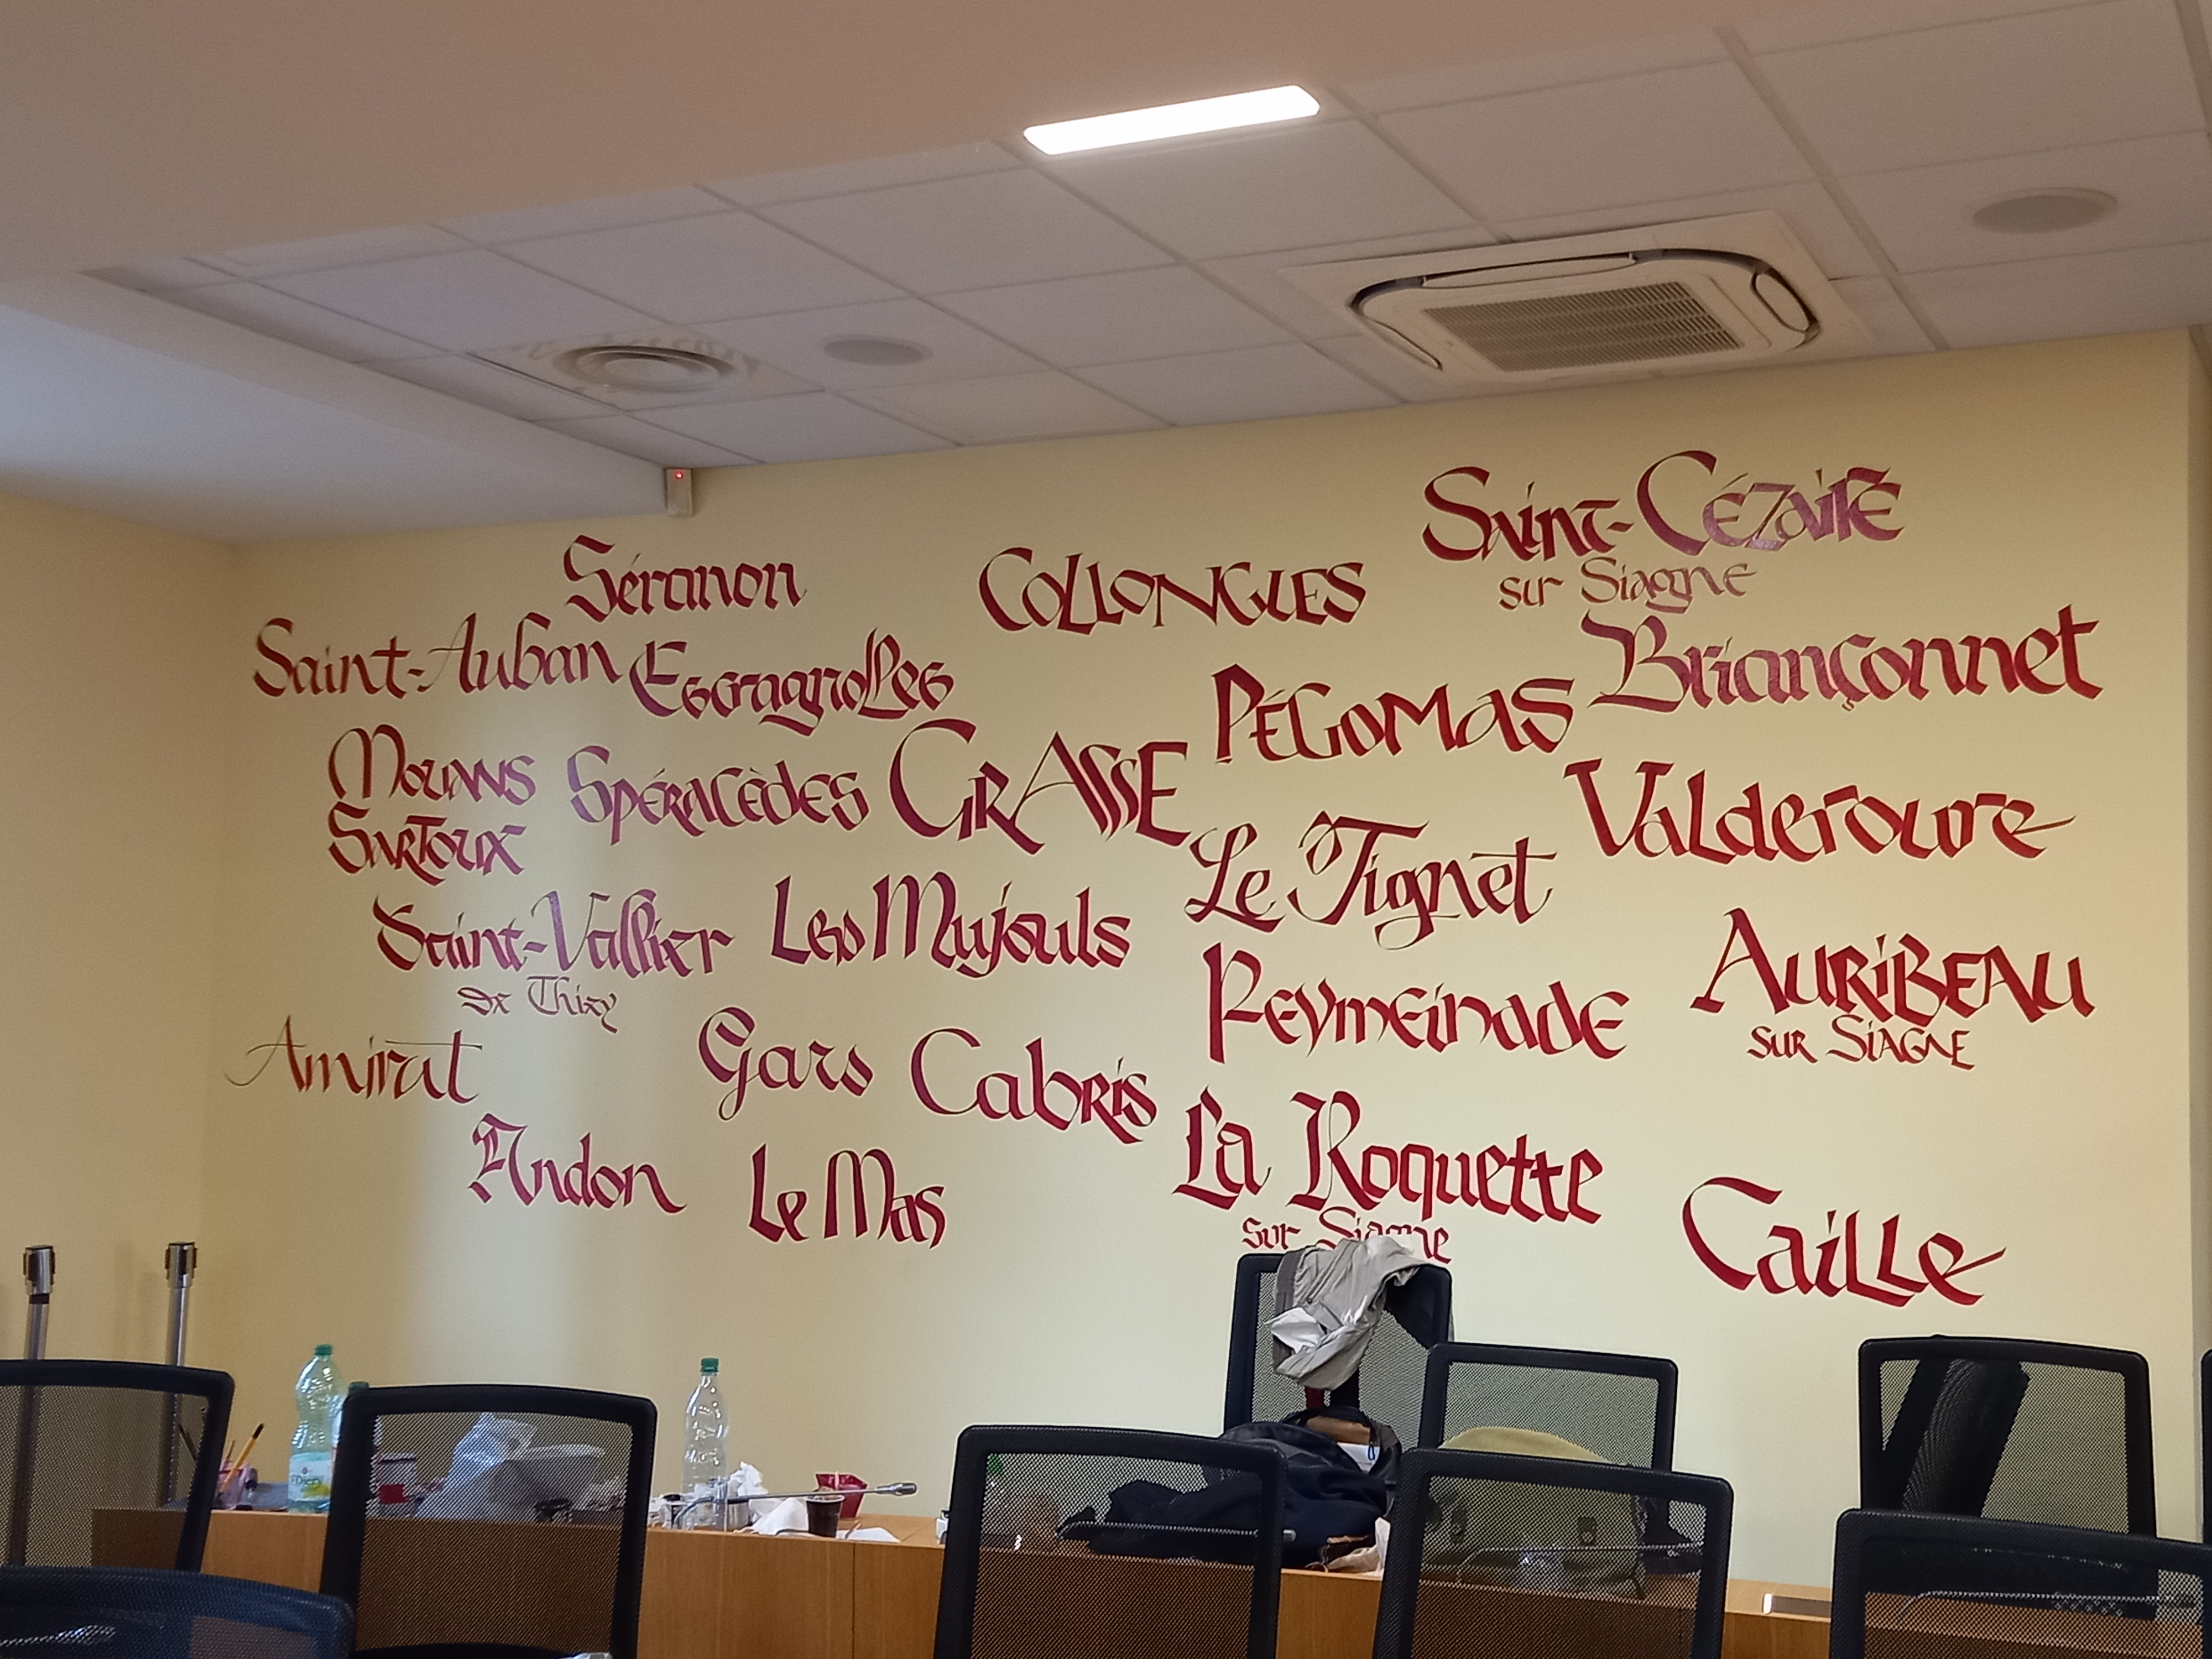 Saint-Cézaire
sur Siagne
Séranon
COLLONGUES
Saint-Auban
Escragnolles
PÉGOMAS
Briançonnet
Mouans
Sartoux
Spéracèdes
GRASSE
Valderoure
Le Tignet
Saint-Vallier
De Thiey
Les Mujouls
Peymeinade
AURiBEAU
SUR SiAGNE
Amirat
Gars
Cabris
Andon
Le Mas
La Roquette
sur Siagne
Caille